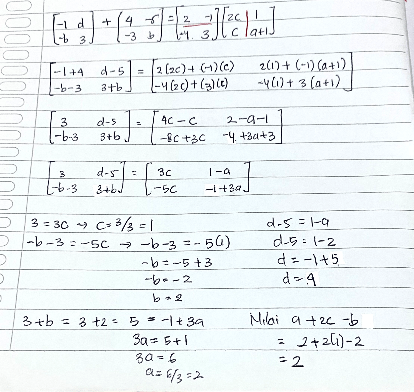 [-1 d / -b 3] + [4 -5 / -3 b] = [2 -1 / -4 3] [2c 1 / c a+1]
[-1+4 d-5 / -b-3 3+b] = [2(2c)+(-1)(c) 2(1)+(-1)(a+1) / -4(2c)+(3)(c) -4(1)+3(a+1)]
[3 d-5 / -b-3 3+b] = [4c-c 2-a-1 / -8c+3c -4+3a+3]
[3 d-5 / -b-3 3+b] = [3c 1-a / -5c -1+3a]
3 = 3c → c = 3/3 = 1
-b-3 = -5c → -b-3 = -5(1)
-b = -5+3
-b = -2
b = 2
d-5 = 1-a
d-5 = 1-2
d = -1+5
d = 4
3+b = 3+2 = 5 = -1+3a
3a = 5+1
3a = 6
a = 6/3 = 2
Nilai a+2c-b
= 2+2(1)-2
= 2